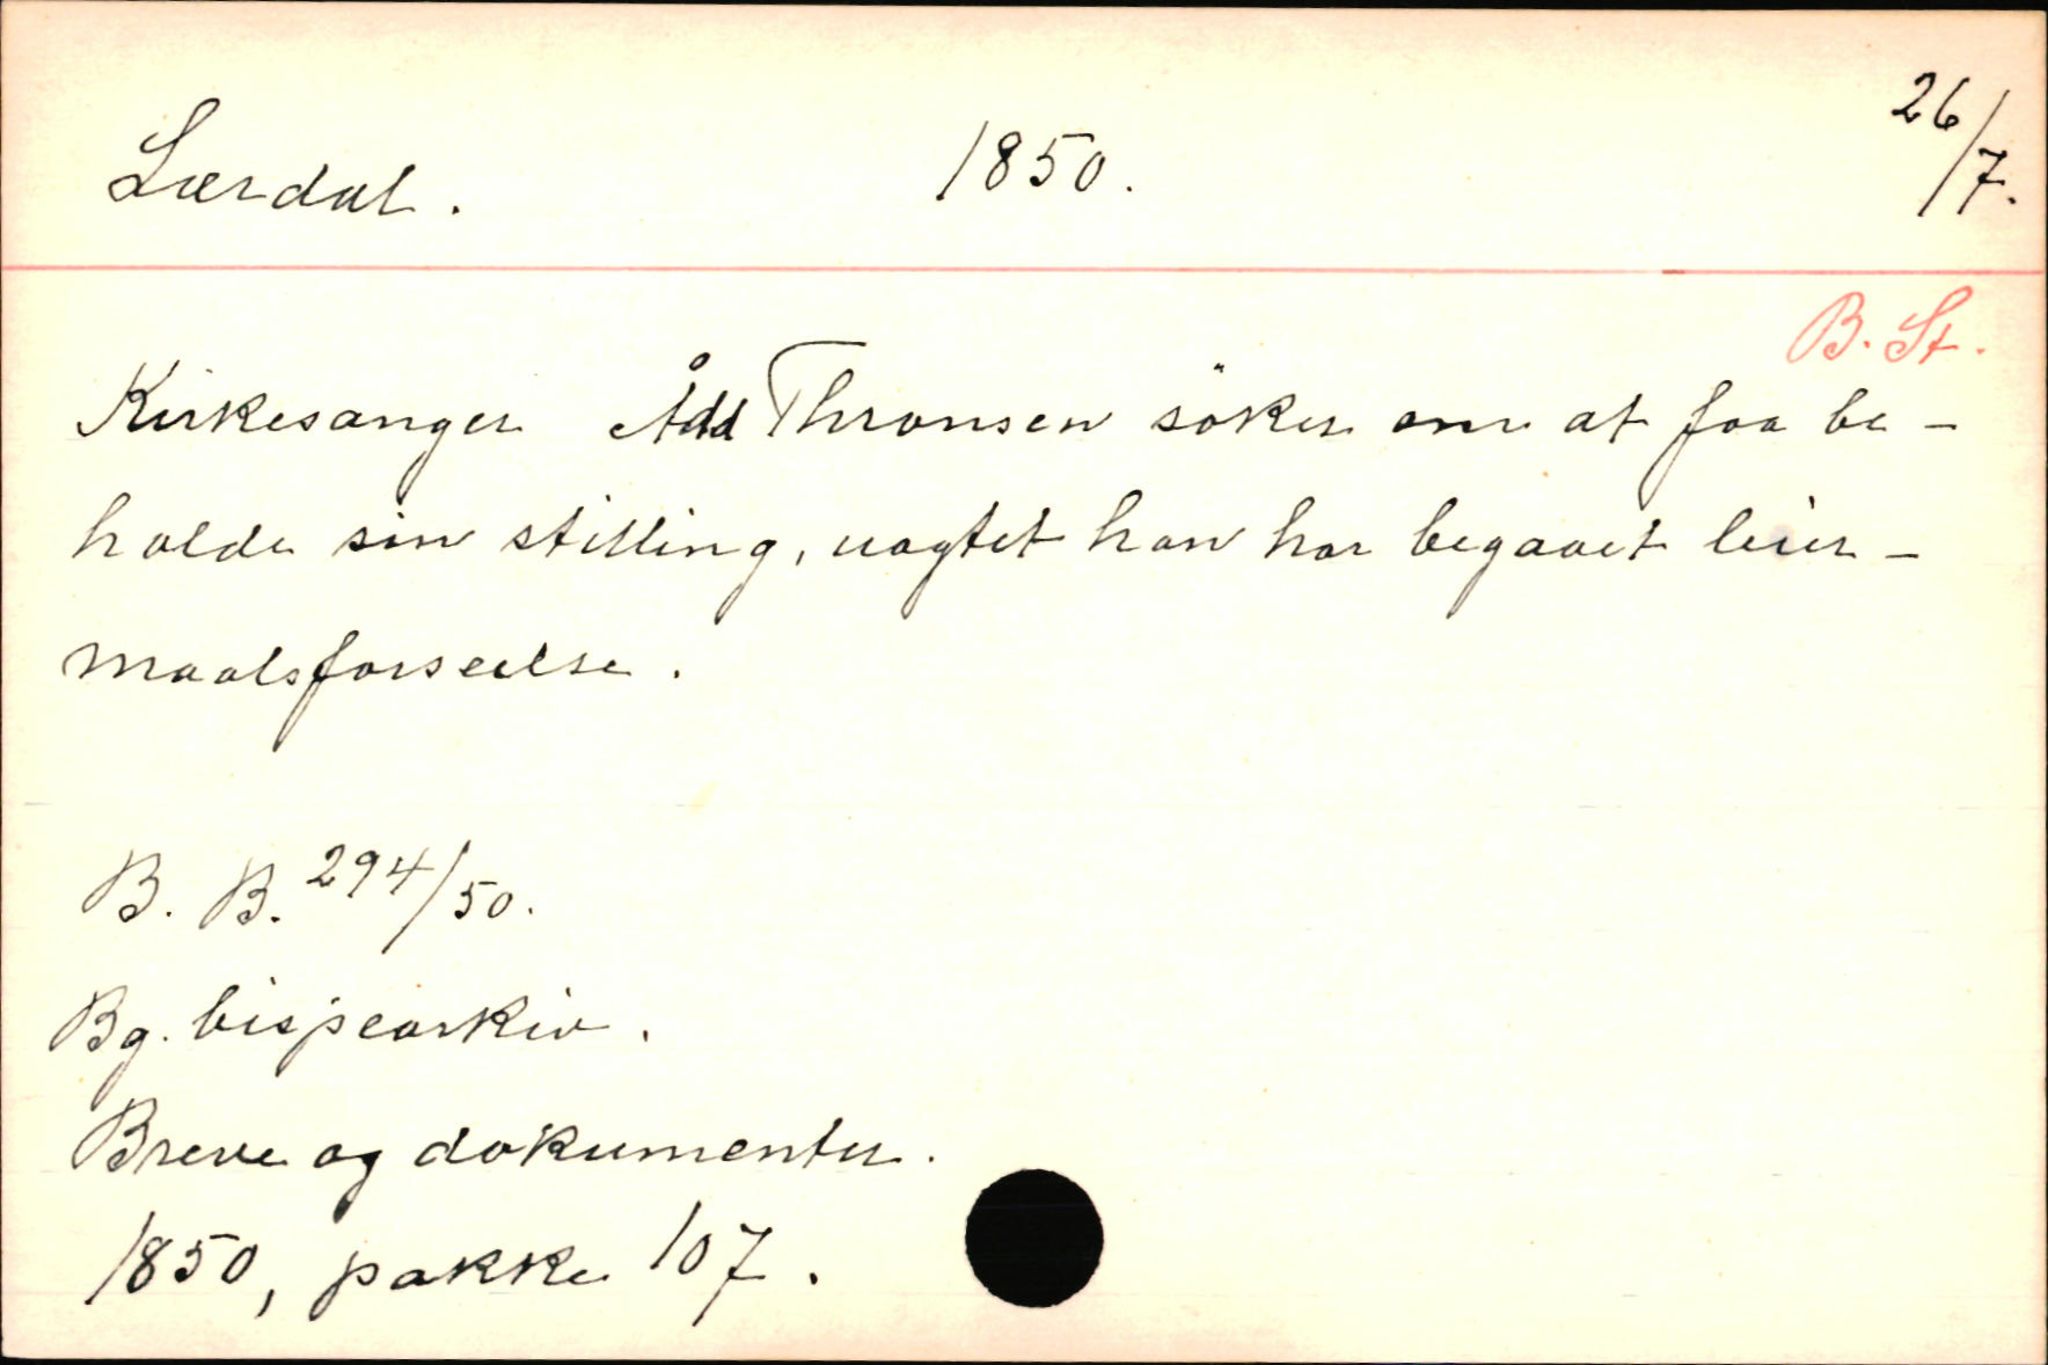 Lærdal. 1850. 26/7.
B. St.
Kirkesanger Ådd Thronsen söker om at faa be-
holde sin stilling, uagtet han har begaaet leier-
maalsforseelse.
B. B. 294/50.
Bg. bispearkiv.
Breve og dokumenter.
1850, pakke 107.